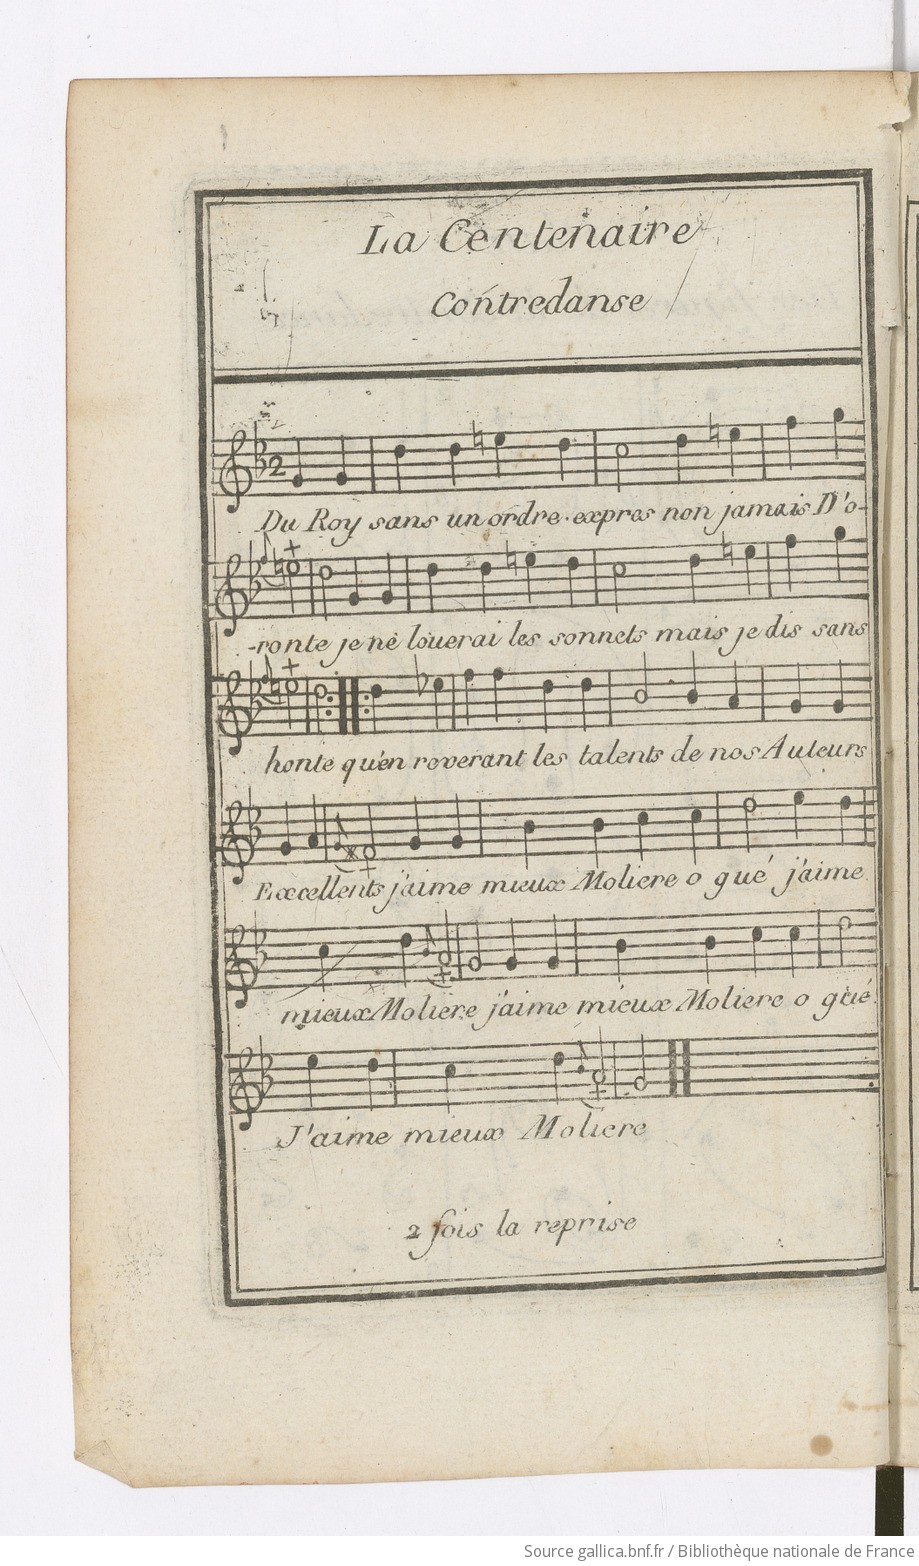 La Centenaire
Contredanse
2
Du Roy sans un ordre expres non jamais D'o-
-ronte je ne loüerai les sonnets mais je dis sans
honte qu'en reverant les talents de nos Auteurs
Excellents j'aime mieux Moliere o gué j'aime
mieux Moliere j'aime mieux Moliere o gué
J'aime mieux Moliere
2 fois la reprise
Source gallica.bnf.fr / Bibliothèque nationale de France